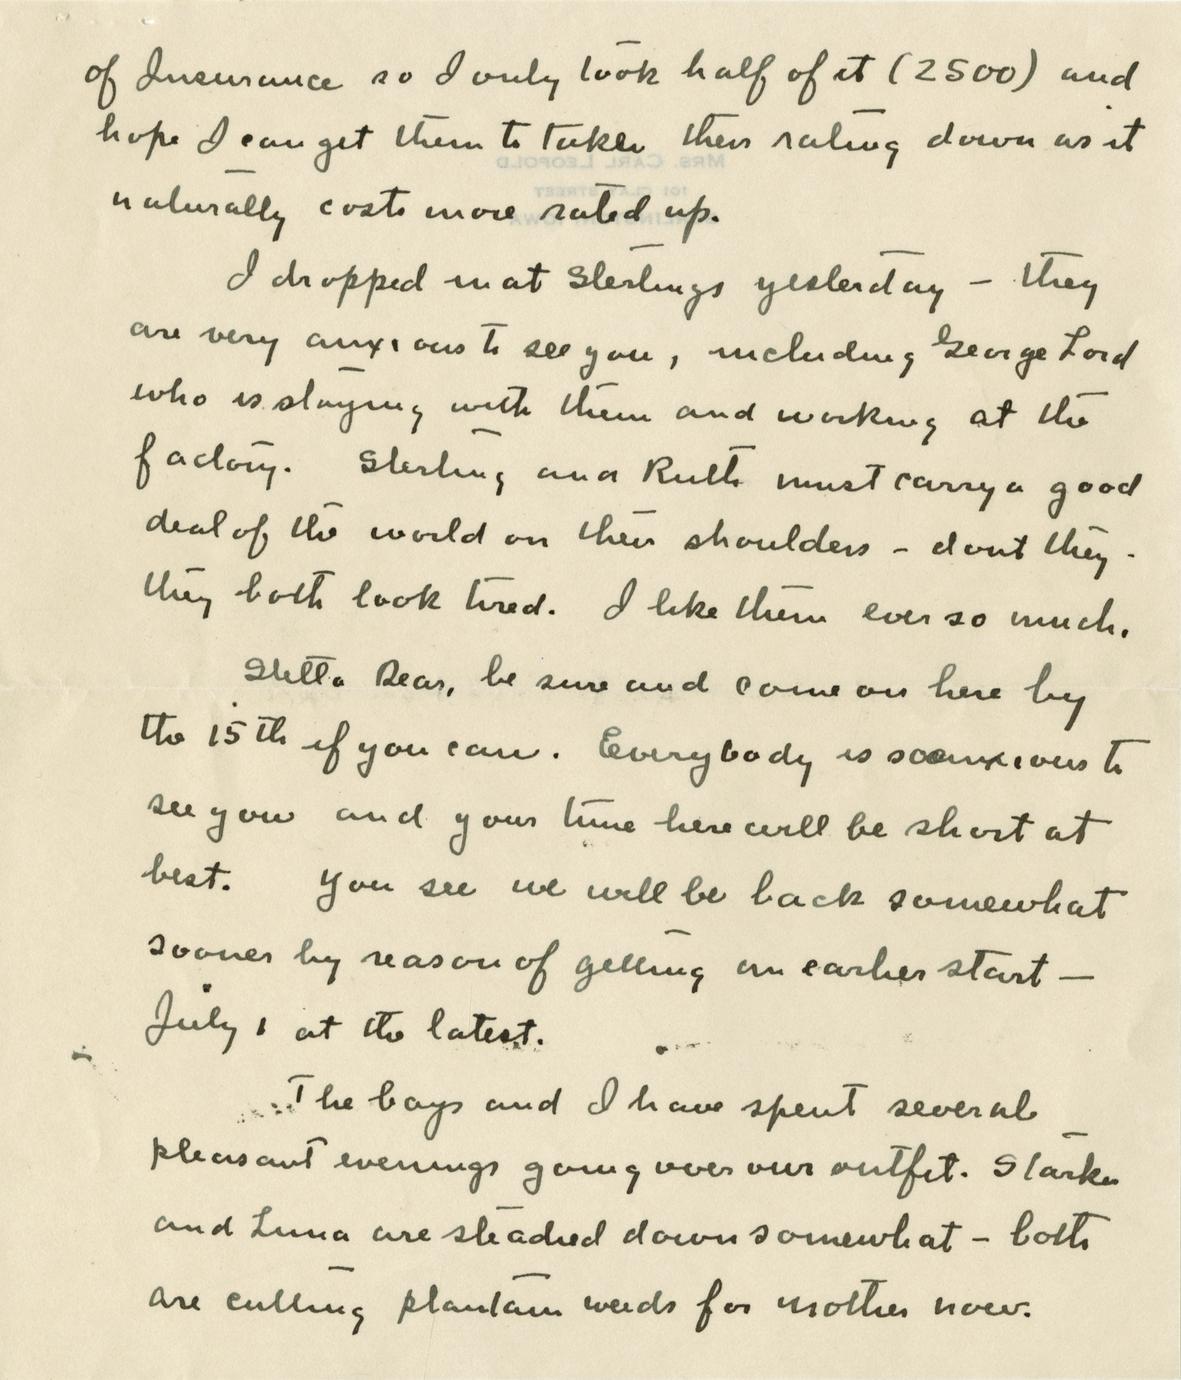 of Insurance so I only took half of it (2500) and
hope I can get them to take their rating down as it
naturally costs more rated up.
I dropped in at Sterlings yesterday – they
are very anxious to see you, including George Lord
who is staying with them and working at the
factory. Sterling and Ruth must carry a good
deal of the world on their shoulders – dont they –
they both look tired. I like them ever so much.
Stella Dear, be sure and come on here by
the 15th if you can. Everybody is so anxious to
see you and your time here will be short at
best. You see we will be back somewhat
sooner by reason of getting an earlier start –
July 1 at the latest.
The boys and I have spent several
pleasant evenings going over our outfit. Starker
and Luna are steadied down somewhat – both
are cutting plantain weeds for mother now.
MRS. CARL LEOPOLD
101 CLAY STREET
BURLINGTON IOWA